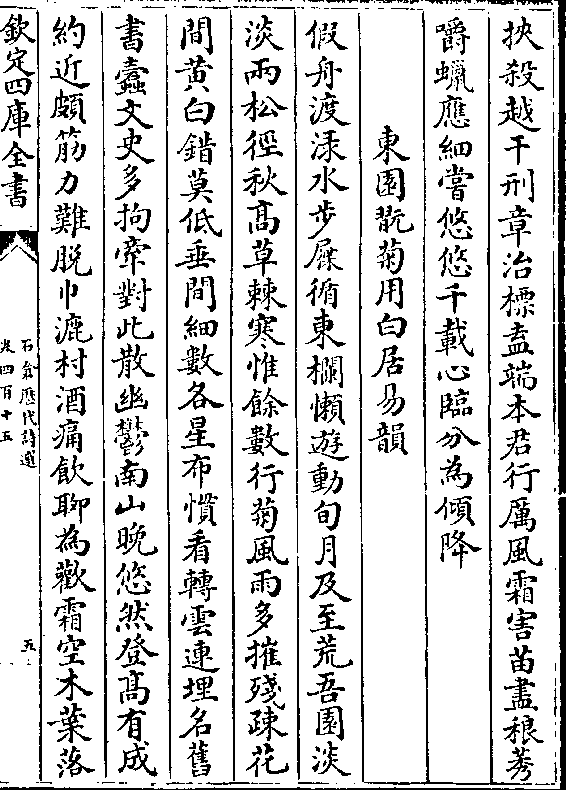 抰殺越干刑章治標盍端本君行厲風霜害苗盡稂莠
嚼蠟應細嘗悠悠千載心臨分為傾降
東園翫菊用白居易韻
假舟渡渌水步屧循東欄懶遊動旬月及至荒吾園淡
淡雨松徑秋髙草棘寒惟餘數行菊風雨多摧殘疎花
間黄白錯莫低垂間細數各星布慣看轉雲連埋名舊
書蠧文史多拘牽對此散幽鬱南山晚悠然登髙有成
約近頗筋力難脱巾漉村酒痛飲聊為歡霜空木葉落
欽定四庫全書
石倉歷代詩選
卷四百十五
五